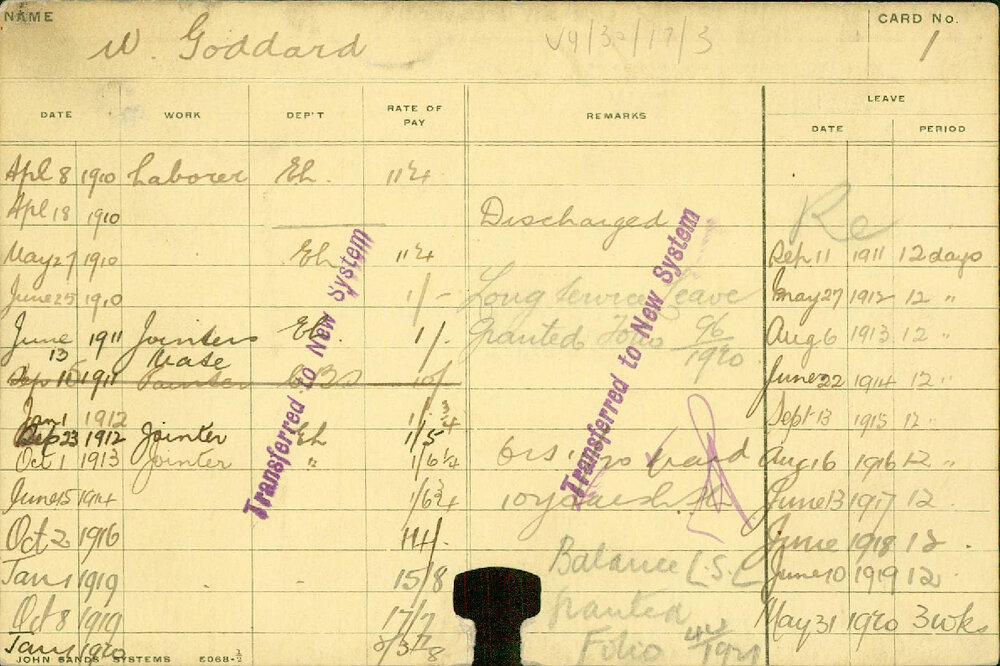 NAME W. Goddard CARD No. 1
DATE WORK DEP'T RATE OF PAY REMARKS LEAVE
DATE PERIOD
Apl 8 1910 Laborer Eh. 11¼
Apl 18 1910 Discharged Re
May 27 1910 Eh 11¼ Sep 11 1911 12 days
June 25 1910 1/- Long Service Leave May 27 1912 12 "
June 13 1911 Jointers Mate Eh. 1/. Granted Folio 96/1920 Aug 6 1913 12 "
Sep 16 1911 10/ June 22 1914 12 "
Jan 1 1912 Sept 13 1915 12 "
Sep 23 1912 Jointer Eh 1/5
Oct 1 1913 Jointer " 1/6¼ Award Aug 16 1916 12 "
June 15 1914 1/6¾ June 13 1917 12
Oct 2 1916 14/. June 1918 12
Jan 1 1919 15/8 Balance L.S.L June 10 1919 12
Oct 8 1919 17/7 Granted May 31 1920 3 wks
Jan 1920 Folio
Transferred to New System
Transferred to New System
JOHN SANDS SYSTEMS